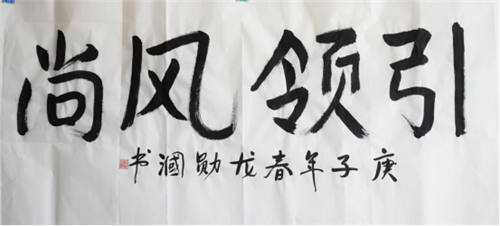 引领风尚
庚子年春龙勋国书